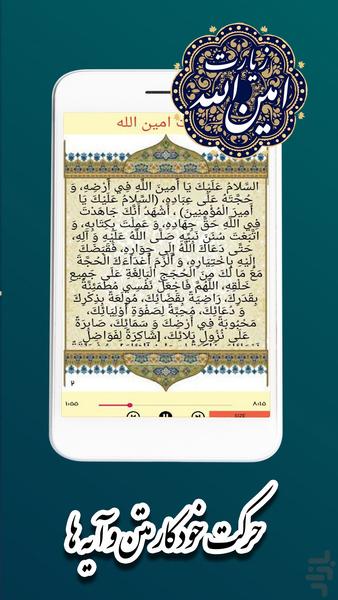 زیارت
امین الله
ت امین الله
السَّلامُ عَلَيْكَ يَا أَمِينَ اللَّهِ فِي أَرْضِهِ، وَ
حُجَّتَهُ عَلَى عِبَادِهِ، (السَّلامُ عَلَيْكَ يَا
أَمِيرَ الْمُؤْمِنِينَ) ، أَشْهَدُ أَنَّكَ جَاهَدْتَ
فِي اللَّهِ حَقَّ جِهَادِهِ، وَ عَمِلْتَ بِكِتَابِهِ، وَ
اتَّبَعْتَ سُنَنَ نَبِيِّهِ صَلَّى اللَّهُ عَلَيْهِ وَ آلِهِ،
حَتَّى دَعَاكَ اللَّهُ إِلَى جِوَارِهِ، فَقَبَضَكَ
إِلَيْهِ بِاخْتِيَارِهِ، وَ أَلْزَمَ أَعْدَاءَكَ الْحُجَّةَ
مَعَ مَا لَكَ مِنَ الْحُجَجِ الْبَالِغَةِ عَلَى جَمِيعِ
خَلْقِهِ، اللَّهُمَّ فَاجْعَلْ نَفْسِي مُطْمَئِنَّةً
بِقَدَرِكَ، رَاضِيَةً بِقَضَائِكَ، مُولَعَةً بِذِكْرِكَ
وَ دُعَائِكَ، مُحِبَّةً لِصَفْوَةِ أَوْلِيَائِكَ،
مَحْبُوبَةً فِي أَرْضِكَ وَ سَمَائِكَ، صَابِرَةً
عَلَى نُزُولِ بَلائِكَ، [شَاكِرَةً لِفَوَاضِلِ
۲
۱:۵۵ ۸:۱۵
SIZE
حرکت خودکار متن و آیه ها
بازار